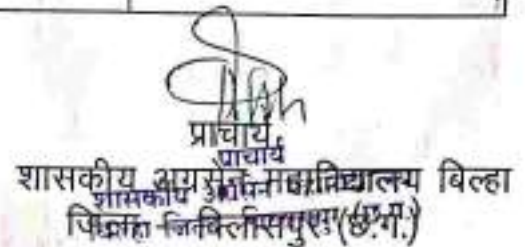 प्राचार्य
प्राचार्य
शासकीय अग्रसेन महाविद्यालय बिल्हा
जिला - बिलासपुर (छ.ग.)